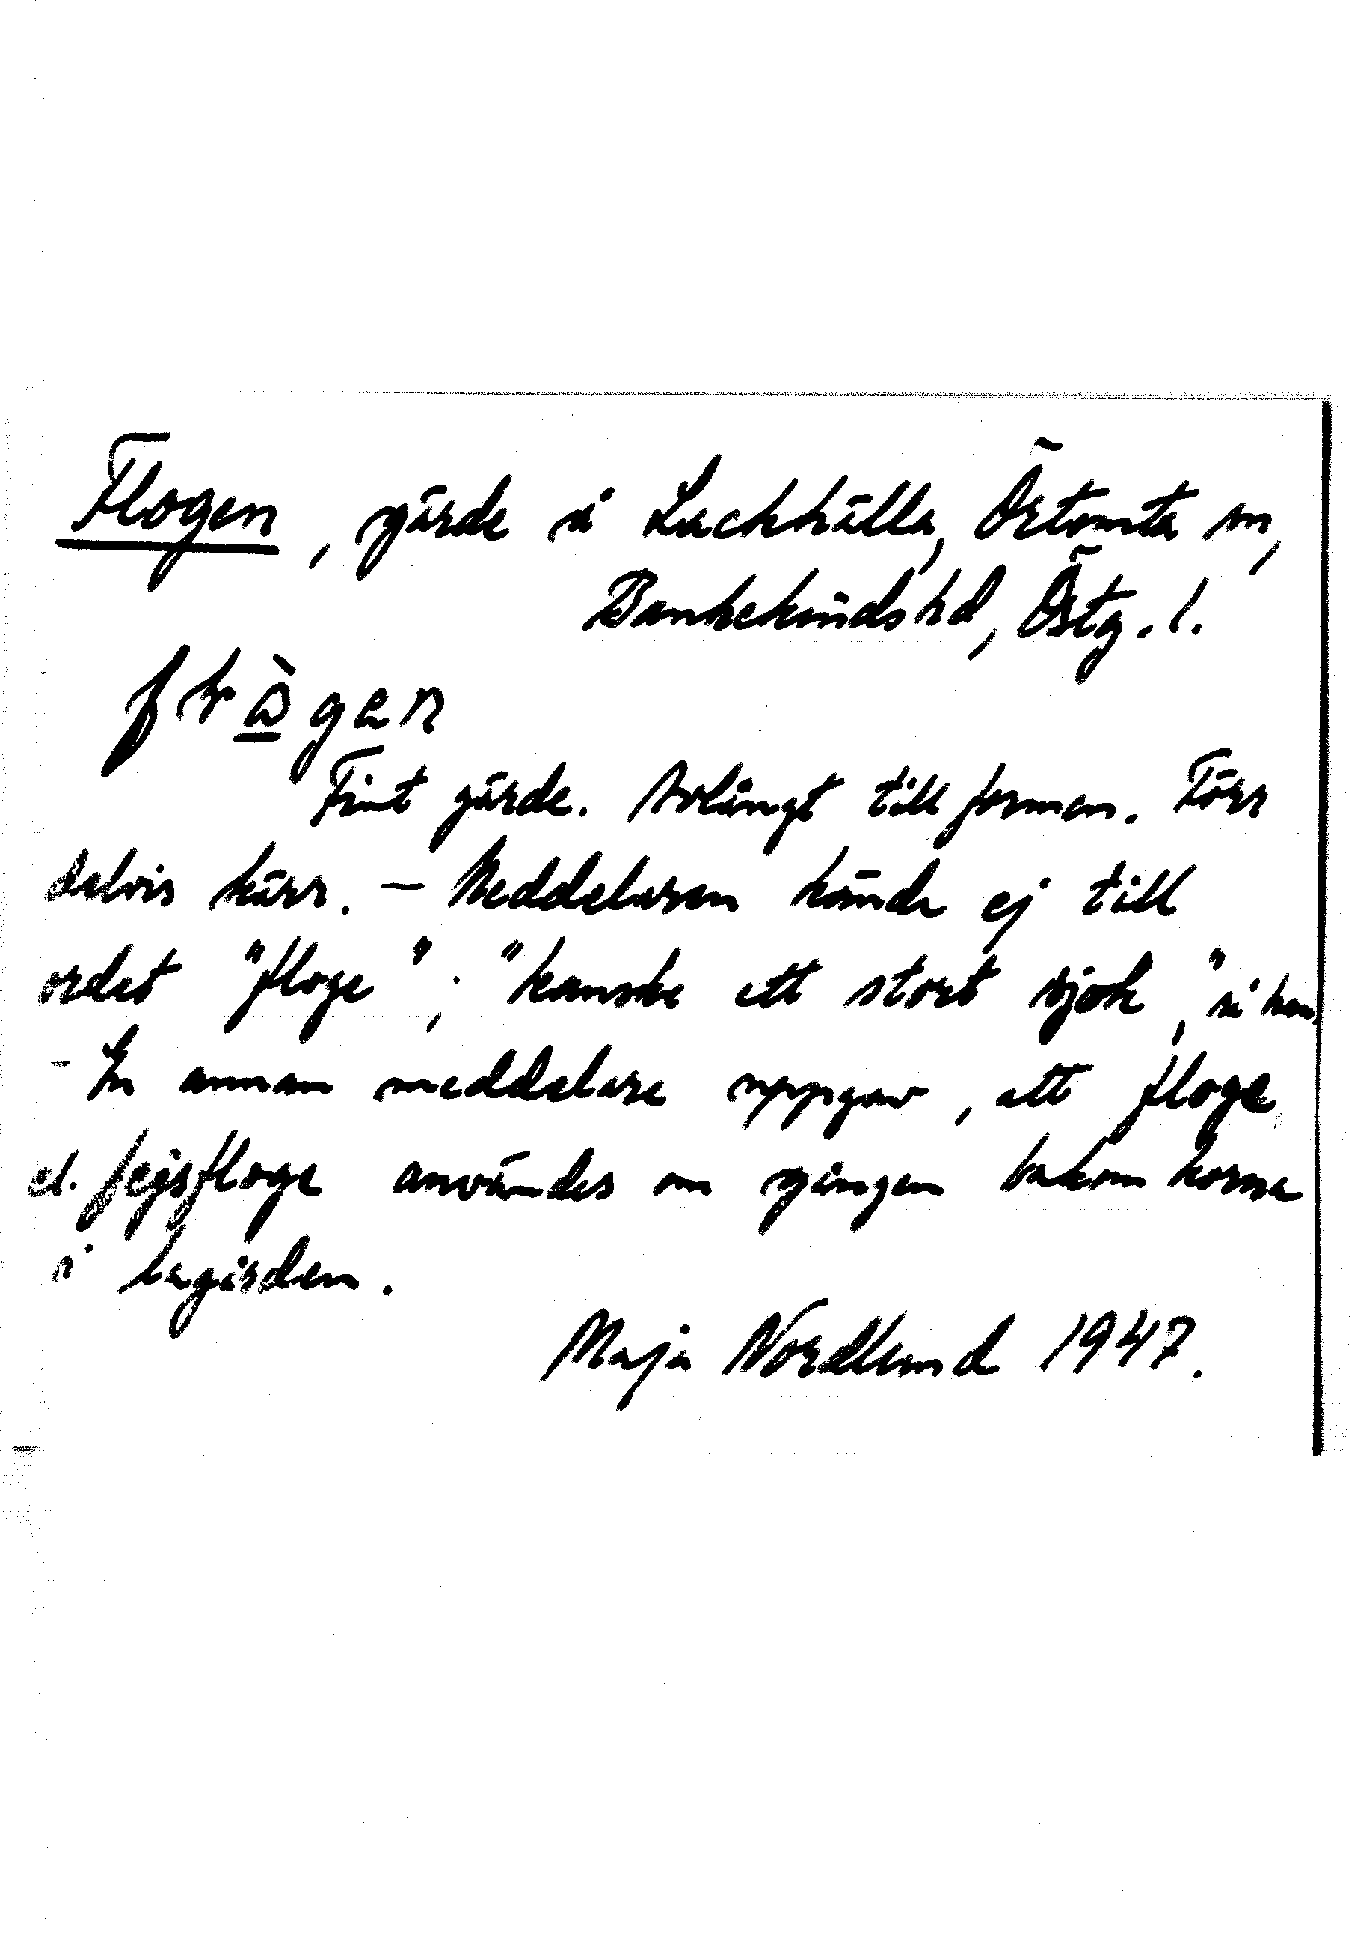 Flogen, gärde å Lackhälla, Örtomta sn,
Bankekinds hd, Östg. l.
Fint gärde. Avlångt till formen. Förr
delvis kärr. – Meddelaren kände ej till
ordet "floge"; "kanske ett stort sjok", sa han.
– En annan meddelare uppgav, att floge
el. fejsfloge användes om gången bakom korna
i lagården.
Maja Nordlund 1947.